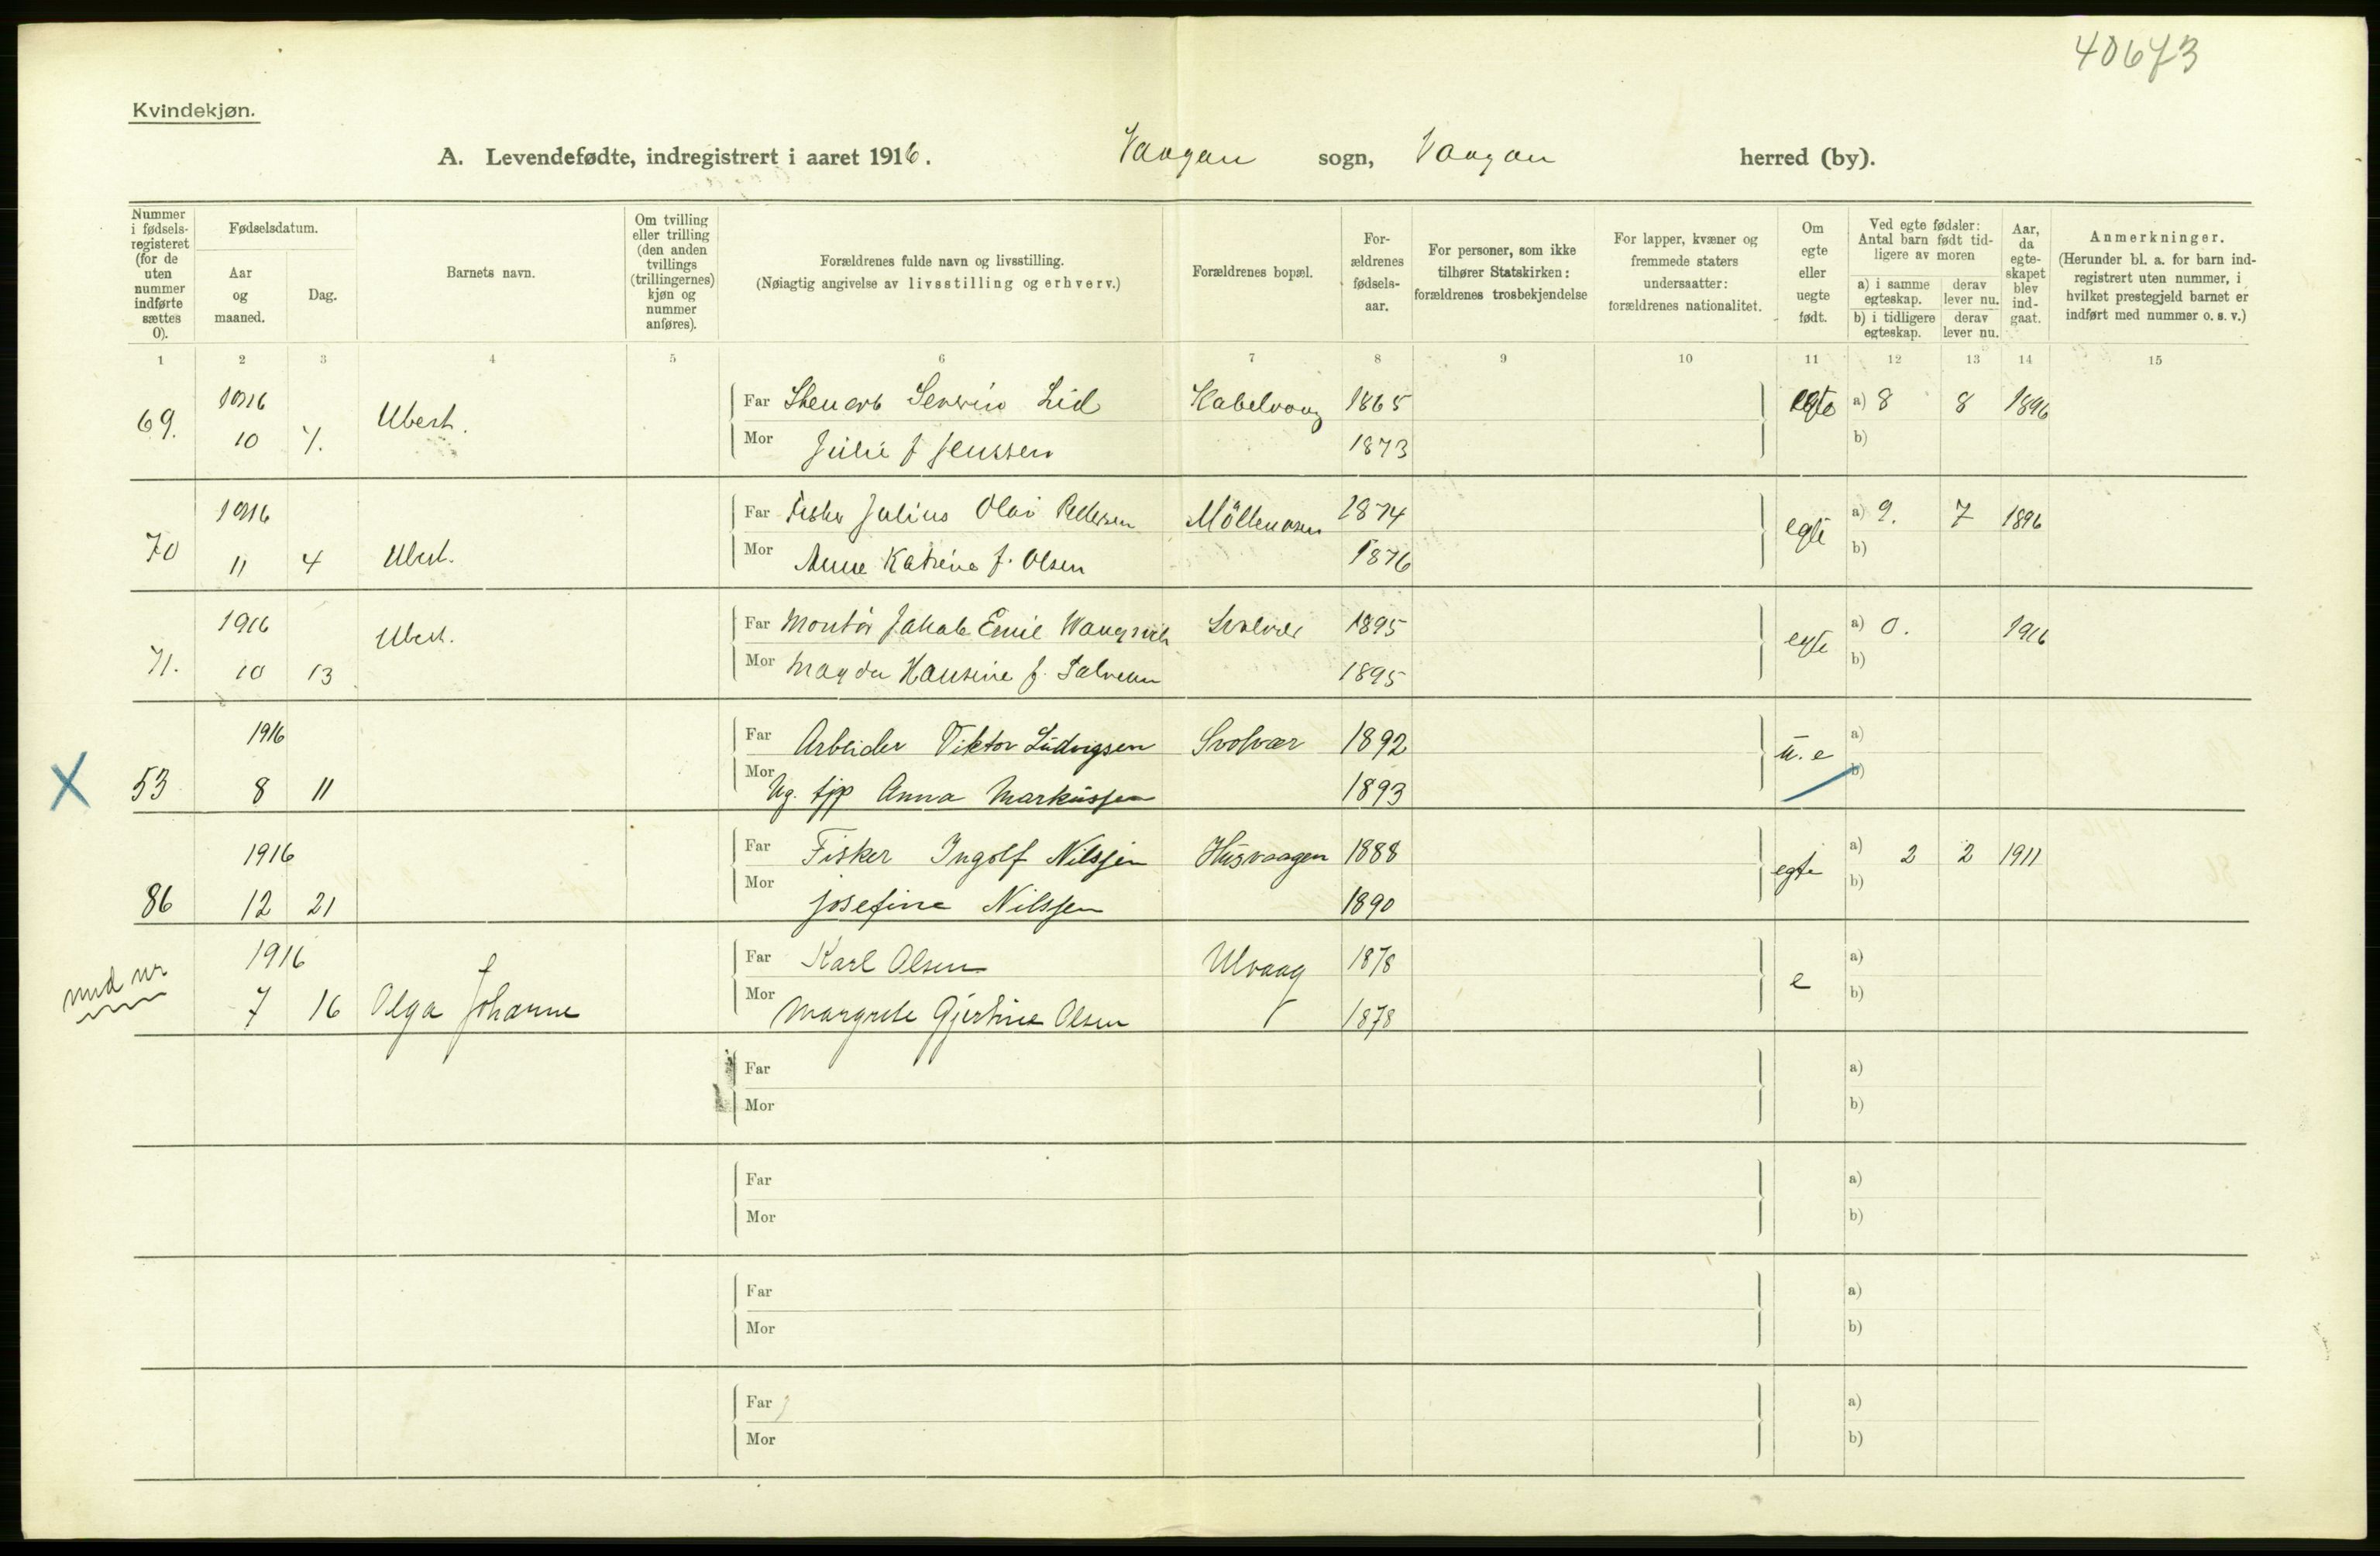 40673
Kvindekjøn.
A. Levendefødte, indregistrert i aaret 1916. Vaagan sogn, Vaagan herred (by).
Nummer i fødselsregisteret (for de uten nummer indførte sættes 0).
Fødselsdatum.
Aar og maaned.
Dag.
Barnets navn.
Om tvilling eller trilling (den anden tvillings (trillingernes) kjøn og nummer anføres).
Forældrenes fulde navn og livsstilling.
(Nøiagtig angivelse av livsstilling og erhverv.)
Forældrenes bopæl.
Forældrenes fødselsaar.
For personer, som ikke tilhører Statskirken: forældrenes trosbekjendelse
For lapper, kvæner og fremmede staters undersaatter: forældrenes nationalitet.
Om egte eller uegte født.
Ved egte fødsler: Antal barn født tidligere av moren
a) i samme egteskap.
derav lever nu.
b) i tidligere egteskap.
derav lever nu.
Aar, da egteskapet blev indgaat.
Anmerkninger.
(Herunder bl. a. for barn indregistrert uten nummer, i hvilket prestegjeld barnet er indført med nummer o. s. v.)
1 2 3 4 5 6 7 8 9 10 11 12 13 14 15
1916 Far Severin Lid Kabelvaag 1865 egte a) 8 8 1896
69. 10 7. Ubest. Mor Julie f Jenssen 1873 b)
1916 Far Fisker Julius Olai Pedersen 1874 egte a) 9. 7 1896
70 11 4 Ubest. Mor Anne Katrine f. Olsen 1876 b)
1916 Far Montør Jakob Emil Svolvær 1895 egte a) 0. 1916
71. 10 13 Ubest. Mor Magda Hansine f. 1895 b)
1916 Far Arbeider Viktor Ludvigsen Svolvær 1892 u.e a)
X 53 8 11 Mor Ug. tjp Anna Markussen 1893 b)
1916 Far Fisker Ingolf Nilssen Husvaagen 1888 egte a) 2 2 1911
86 12 21 Mor Josefine Nilssen 1890 b)
1916 Far Karl Olsen Ulvaag 1878 e a)
7 16 Olga Johanne Mor Margrete Gjertine Olsen 1878 b)
Far a)
Mor b)
Far a)
Mor b)
Far a)
Mor b)
Far a)
Mor b)